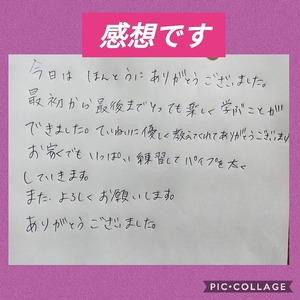 感想です
今日は ほんとうに ありがとうございました。
最初から最後までとっても楽しく学ぶことが
できました。ていねいに優しく教えてくれてありがとうございます
お家でも いっぱい 練習して パイプを太く
していきます。
また、よろしく お願いします。
ありがとうございました。
PIC•COLLAGE